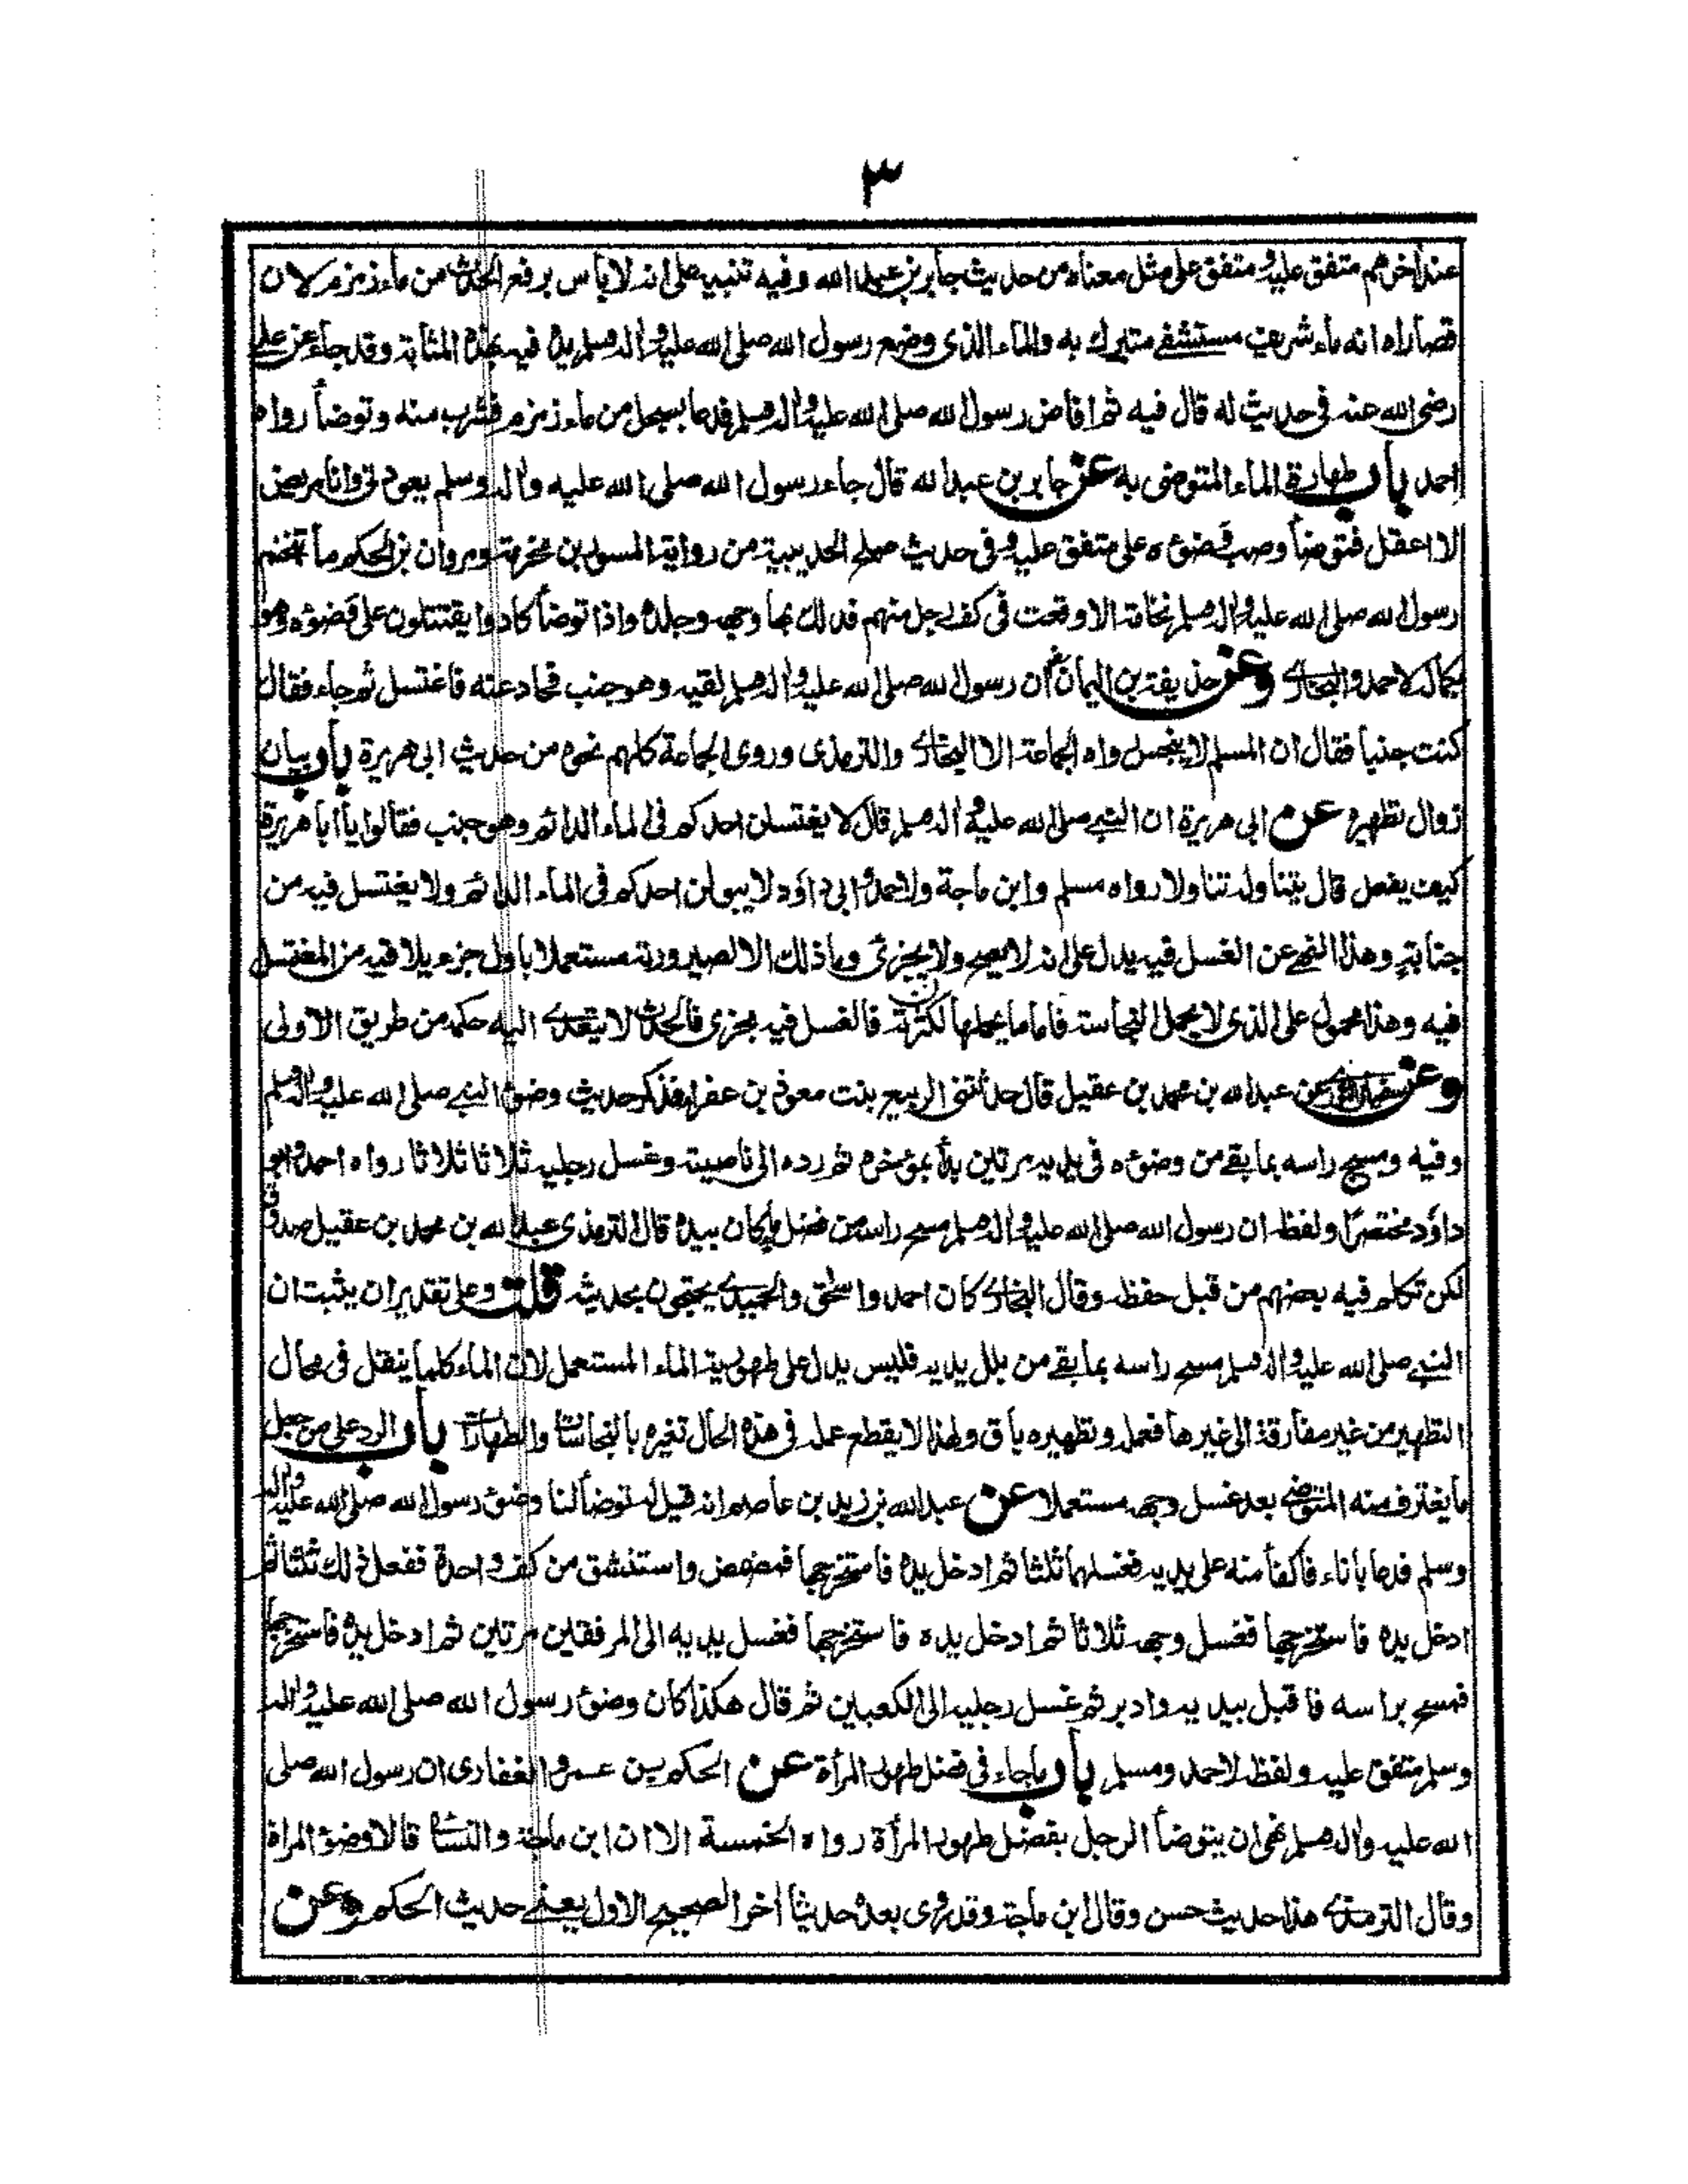 ٣
عند اخرهم متفق عليه ومتفق على مثل معناه من حديث جابر بن عبد الله وفيه تنبيه على انه لا باس برفع الحدث من ماء زمزم لان
قصاراه انه ماء شريف مستشفى متبرك به والماء الذى وضع رسول الله صلى الله عليه واله وسلم يده فيه بهذه المثابة وقد جاء عن على
رضى الله عنه فى حديث له قال فيه ثم افاض رسول الله صلى الله عليه واله وسلم فدعا بسجل من ماء زمزم فشرب منه وتوضأ رواه
احمد باب طهارة الماء المتوضى به عن جابر بن عبد الله قال جاء رسول الله صلى الله عليه واله وسلم يعودنى وانا مريض
لا اعقل فتوضأ وصب وضوءه على متفق عليه وفى حديث صلح الحديبية من رواية المسور بن مخرمة ومروان بن الحكم ما تنخم
رسول الله صلى الله عليه واله وسلم نخامة الا وقعت فى كف رجل منهم فدلك بها وجهه وجلده واذا توضأ كادوا يقتتلون على وضوئه وهو
بكماله لاحمد والبخارى وعن حذيفة بن اليمان ان رسول الله صلى الله عليه واله وسلم لقيه وهو جنب فحاد عنه فاغتسل ثم جاء فقال
كنت جنبا فقال ان المسلم لا ينجس رواه الجماعة الا البخارى والترمذى وروى الجماعة كلهم نحوه من حديث ابى هريرة باب بيان
زوال تطهيره عن ابى هريرة ان النبى صلى الله عليه واله وسلم قال لا يغتسلن احدكم فى الماء الدائم وهو جنب فقالوا يا أبا هريرة
كيف يفعل قال يتناوله تناولا رواه مسلم وابن ماجة ولاحمد وابى داؤد لا يبولن احدكم فى الماء الدائم ولا يغتسل فيه من
جنابة وهذا النهى عن الغسل فيه يدل على انه لا يصح ولا يجزئ وما ذلك الا لصيرورته مستعملا باول جزء يلاقيه من المغتسل
فيه وهذا محمول على الذى لا يحمل النجاسة فاما ما يحملها لكثرته فالغسل فيه مجزى فالحدث لا يتعدى اليه حكمه من طريق الاولى
وعن سفيان الثورى عن عبد الله بن محمد بن عقيل قال حدثتنى الربيع بنت معوذ بن عفراء فذكر حديث وضوء النبى صلى الله عليه واله وسلم
وفيه ومسح راسه بما بقى من وضوءه فى يديه مرتين بدأ بمؤخره ثم رده الى ناصيته وغسل رجليه ثلاثا ثلاثا رواه احمد وابو
داؤد مختصرا ولفظه ان رسول الله صلى الله عليه واله وسلم مسح راسه من فضل ماء كان بيده قال الترمذى عبد الله بن محمد بن عقيل صدوق
لكن تكلم فيه بعضهم من قبل حفظه وقال البخارى كان احمد واسحق والحميدى يحتجون بحديثه قلت وعلى تقدير ان يثبت ان
النبى صلى الله عليه واله وسلم مسح راسه بما بقى من بلل يديه فليس يدل على طهورية الماء المستعمل لان الماء كلما ينقل فى محال
التطهير من غير مفارقة الى غيرها فعمله وتطهيره باق ولهذا لا يقطع عمله فى هذه الحال تغيره بالنجاسات والطهارات باب الرد على من جعل
ما يغترف منه المتوضى بعد غسل وجهه مستعملا عن عبد الله بن زيد بن عاصم انه قيل له توضأ لنا وضوء رسول الله صلى الله عليه واله
وسلم فدعا باناء فاكفأ منه على يديه فغسلهما ثلثا ثم ادخل يده فاستخرجها فمضمض واستنشق من كف واحدة ففعل ذلك ثلثا ثم
ادخل يده فاستخرجها فغسل وجهه ثلاثا ثم ادخل يده فاستخرجها فغسل يديه الى المرفقين مرتين ثم ادخل يده فاستخرجها
فمسح براسه فاقبل بيديه وادبر ثم غسل رجليه الى الكعبين ثم قال هكذا كان وضوء رسول الله صلى الله عليه واله
وسلم متفق عليه ولفظه لاحمد ومسلم باب ماجاء فى فضل طهور المرأة عن الحكم بن عمرو الغفارى ان رسول الله صلى
الله عليه واله وسلم نهى ان يتوضأ الرجل بفضل طهور المرأة رواه الخمسة الا ان ابن ماجة والنسائى قالا وضوء المراة
وقال الترمذى هذا حديث حسن وقال ابن ماجة وقد روى بعده حديثا اخر الصحيح الاول يعنى حديث الحكم وعن